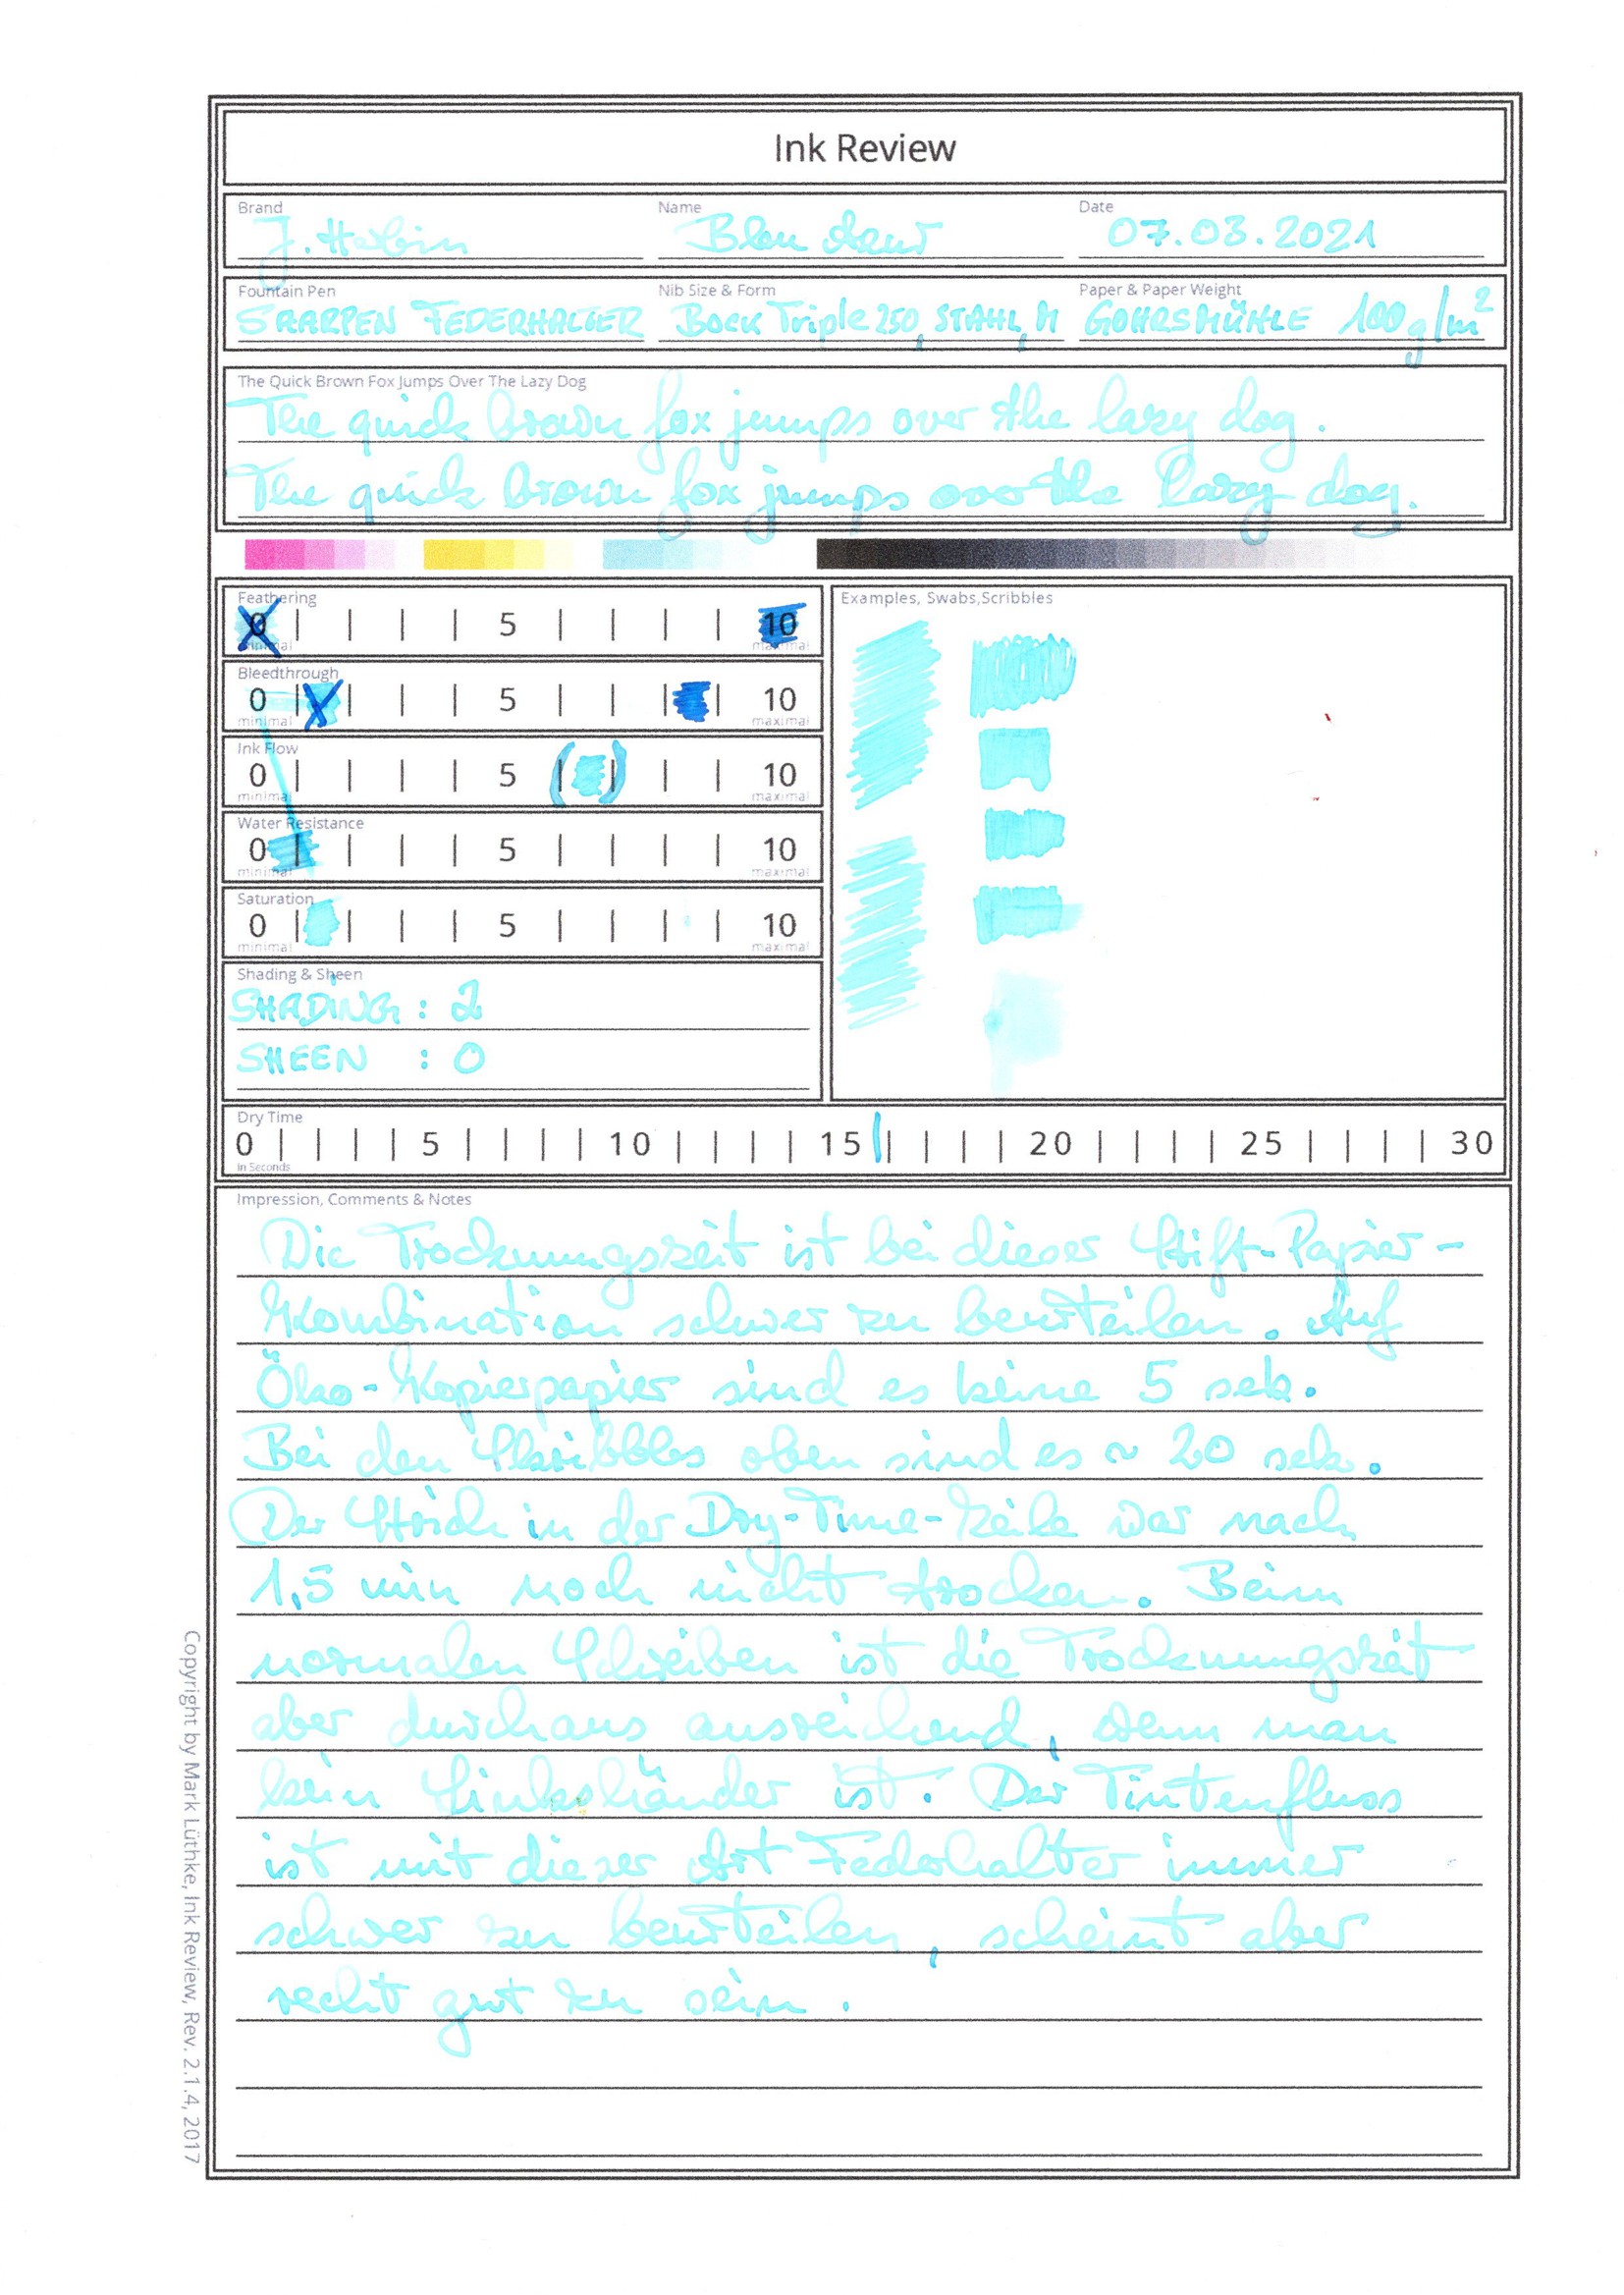 Ink Review
Brand Name Date
J. Herbin Bleu Azur 07.03.2021
Fountain Pen Nib Size & Form Paper & Paper Weight
SAARPEN FEDERHALTER Bock Triple 250, STAHL, M GOHRSMÜHLE 100 g/m²
The Quick Brown Fox Jumps Over The Lazy Dog
The quick brown fox jumps over the lazy dog.
The quick brown fox jumps over the lazy dog.
Feathering
0 5 10
minimal maximal
Bleedthrough
0 5 10
minimal maximal
Ink Flow
0 ( ) 5 10
minimal maximal
Water Resistance
0 5 10
minimal maximal
Saturation
0 5 10
minimal maximal
Shading & Sheen
SHADING : 2
SHEEN : 0
Examples, Swabs,Scribbles
Dry Time
0 5 10 15 20 25 30
in Seconds
Impression, Comments & Notes
Die Trocknungszeit ist bei dieser Stift-Papier-
Kombination schwer zu beurteilen. Auf
Öko-Kopierpapier sind es keine 5 sek.
Bei den Skribbles oben sind es ~ 20 sek.
Der Strich in der Dry-Time-Zeile war nach
1,5 min noch nicht trocken. Beim
normalen Schreiben ist die Trocknungszeit
aber durchaus ausreichend, wenn man
kein Linkshänder ist. Der Tintenfluss
ist mit dieser Art Federhalter immer
schwer zu beurteilen, scheint aber
recht gut zu sein.
Copyright by Mark Lüthke, Ink Review, Rev. 2.1.4, 2017